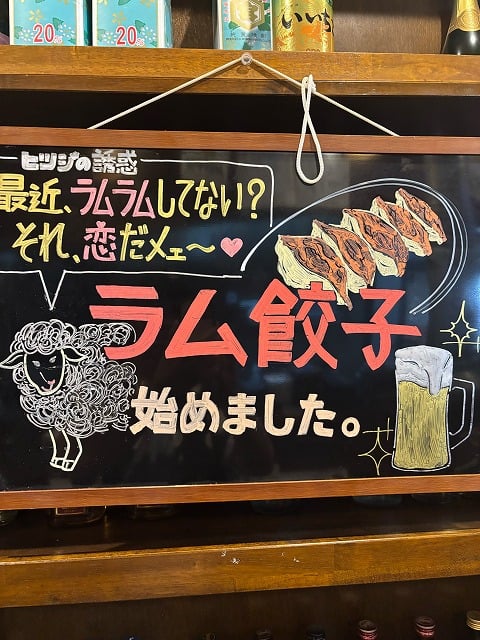 20%
20%
いいち
ヒツジの誘惑
最近、ラムラムしてない?
それ、恋だメェ〜♥
ラム餃子
始めました。